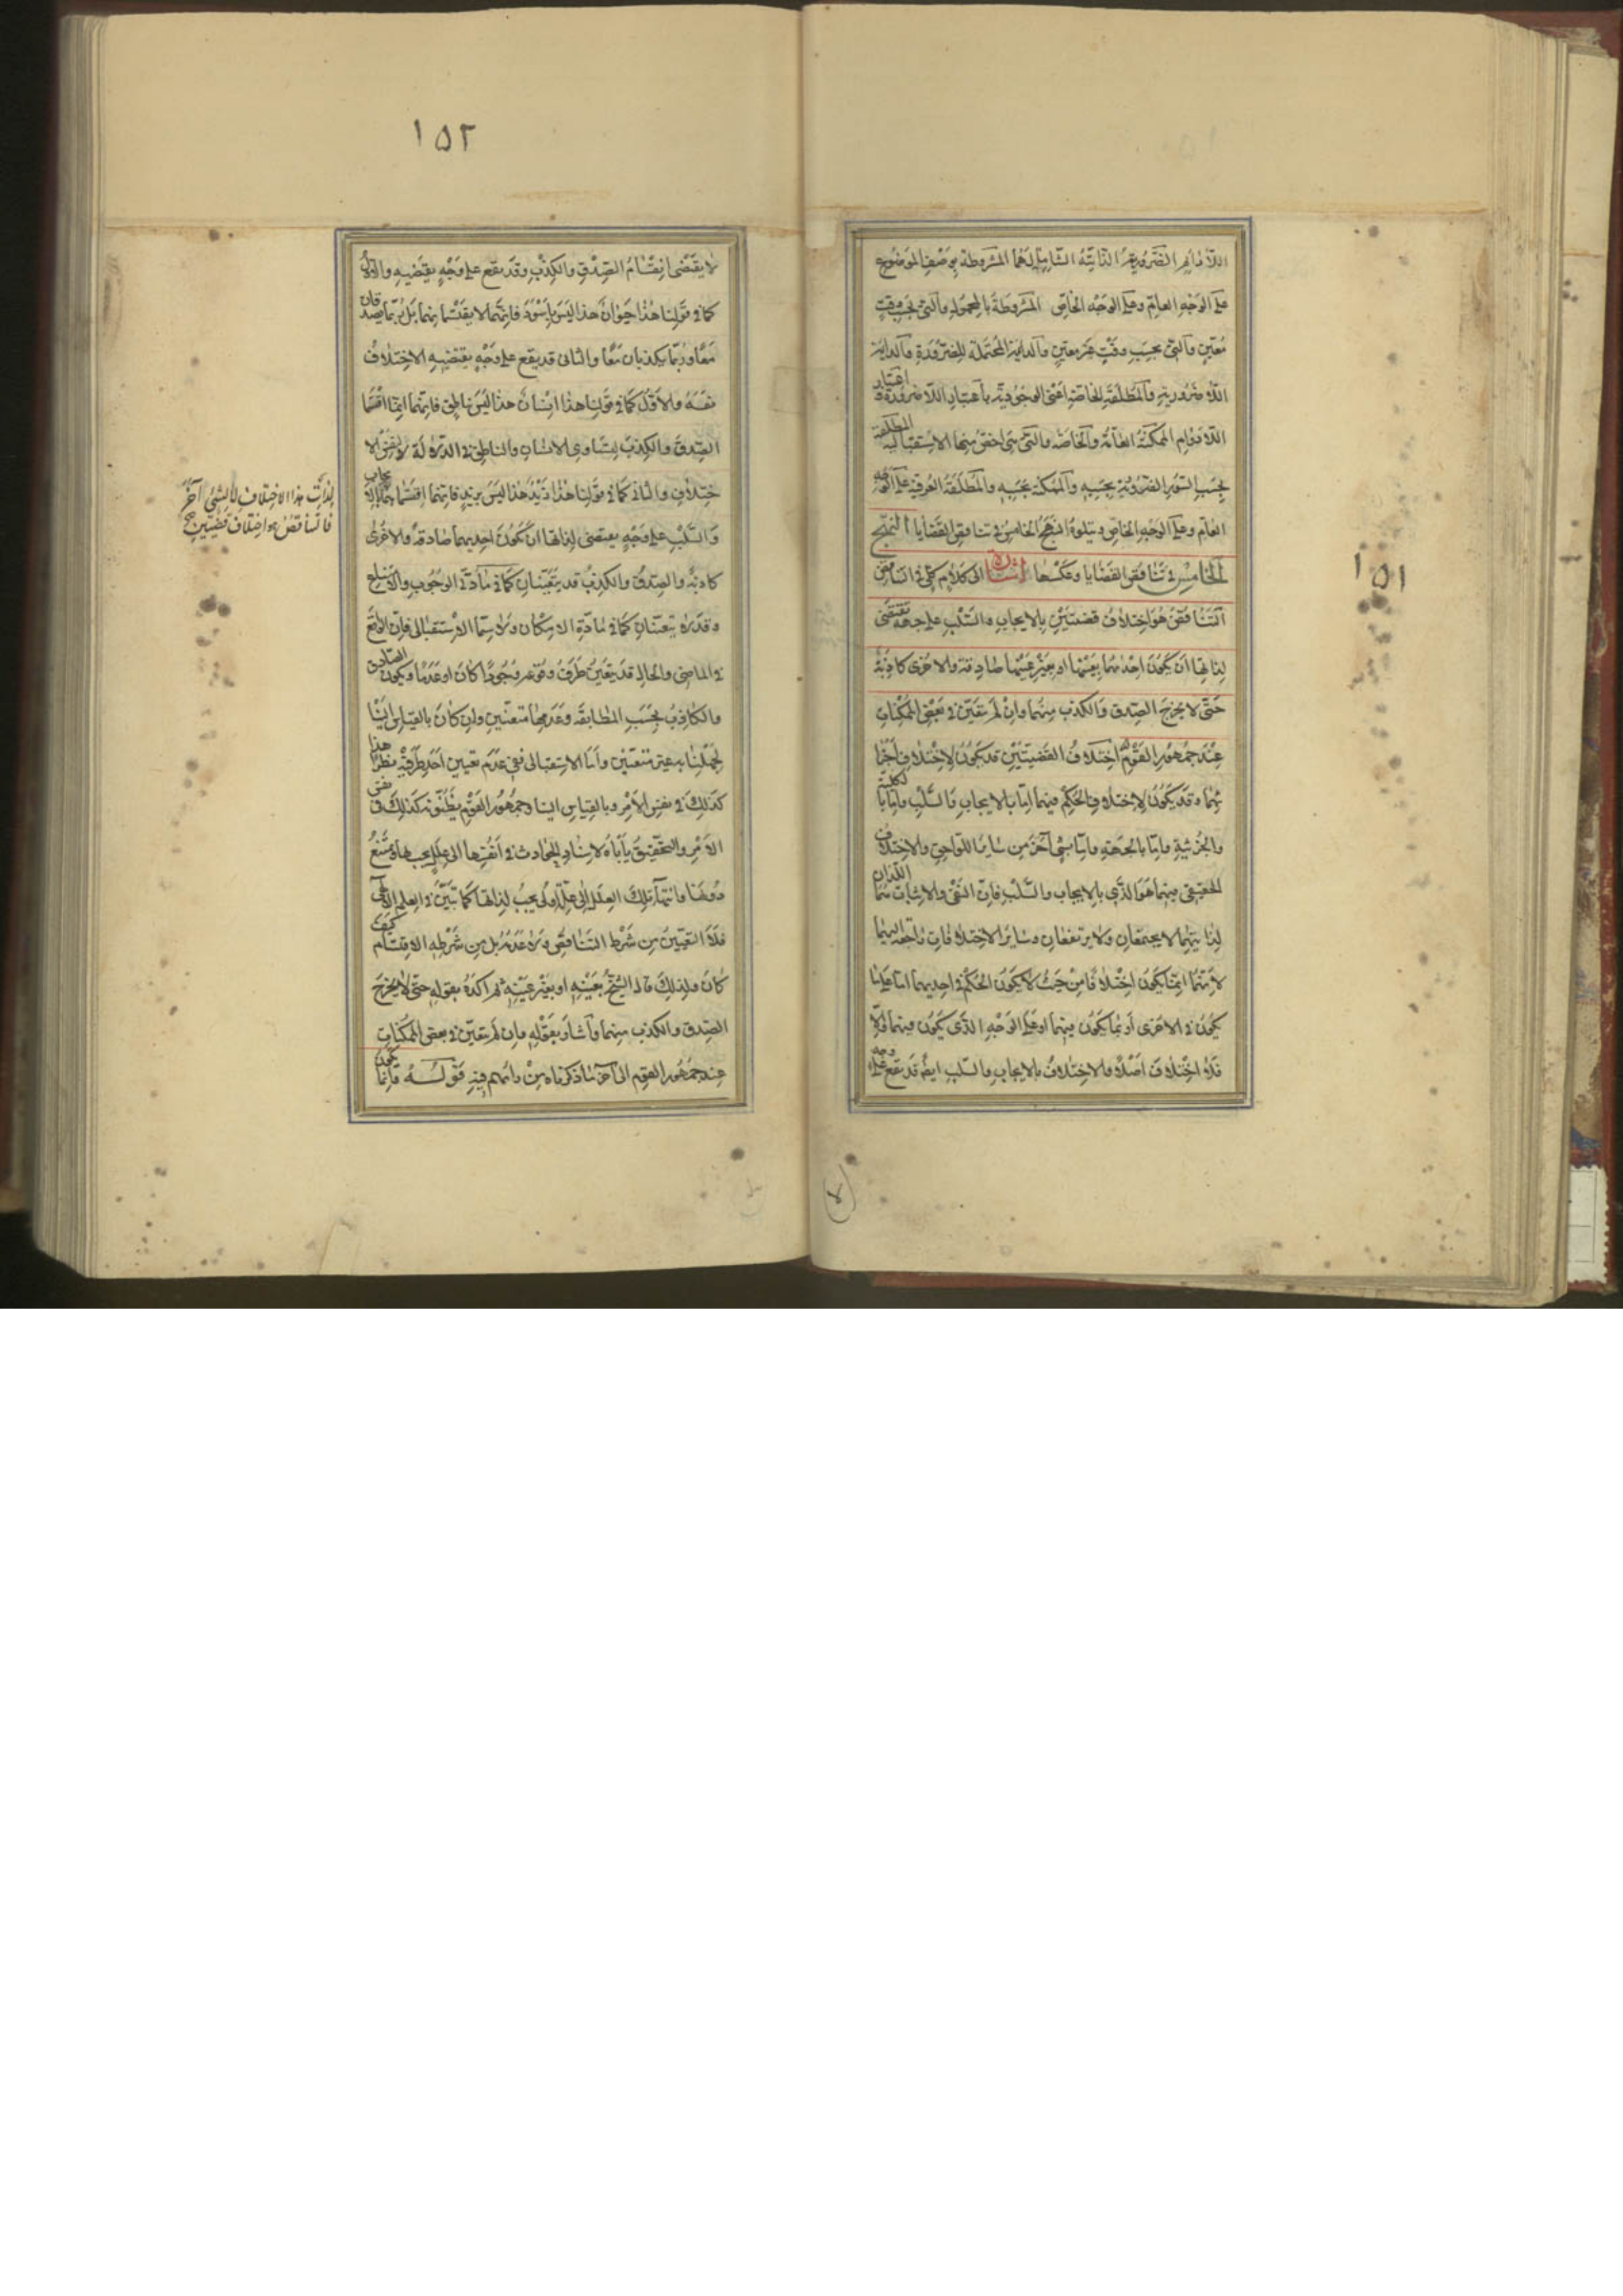 ١٥١
اللادائم الضرورية الذاتية الشاملة لهما المشروطة بوصف الموضوع
على الوجه العام وعلى الوجه الخاص المشروطة بالمحمول والتي بحسب وقت
معين والتي بحسب وقت غير معين والدائمة المحتملة للضرورة والدائمة
اللاضرورية والمطلقة الخاصة اعنى الوجودية باعتبار اللاضرورة و اعتبار
اللادوام الممكنة العامة والخاصة والتي هي اخص منها الاستقبالية المطلقة
بحسب السور الضرورية بحسبه والممكنة بحسبه والمطلقة العرفية على الوجه
العام وعلى الوجه الخاص ويتلوه النهج الخامس في تناقض القضايا النهج
الخامس في تناقض القضايا وعكسها اشارة الى كلام كلي في التناقض
التناقض هو اختلاف قضيتين بالايجاب والسلب على جهة تقتضى
لذاتها ان يكون احدهما بعينها او بغير عينها صادقة والاخرى كاذبة
حتى لا يخرج الصدق والكذب منهما وان لم يتعين في بعض الممكنات
عند جمهور القوم اختلاف القضيتين قد يكون لاختلاف اجزا
ئهما وقد يكون لاختلاف الحكم فيهما اما بالايجاب والسلب واما بالكلية
والجزئية واما بالجهة واما بشيء آخر من سائر اللواحق والاختلاف
الحقيقي بينهما هو الذي بالايجاب والسلب فان النفي والاثبات هما اللذان
لذاتيهما لا يجتمعان ولا يرتفعان وسائر الاختلافات راجعة اليهما
لانها انما يكون اختلافا من حيث لا يكون الحكم في احديهما اما على ما
يكون في الاخرى او بما يكون فيهما او على الوجه الذي يكون فيهما والا
فلا اختلاف اصلا والاختلاف بالايجاب والسلب ايضا قد يقع على وجه
١٥٢
لا يقتضى انقسام الصدق والكذب وقد يقع على وجه يقتضيه والاول
كما في قولنا هذا حيوان هذا ليس باسود فانهما لا يقتسمانهما بل ربما يصدقان
معا وربما يكذبان معا والثاني قد يقع على وجه يقتضيه الاختلاف
نفسه والاول كما في قولنا هذا انسان هذا ليس بناطق فانهما انما اقتسما
الصدق والكذب لتساوي الانسان والناطق في الدلالة لا لنفس الا
ختلاف والثاني كما في قولنا هذا زيد هذا ليس بزيد فانهما اقتسما
لذات هذا الاختلاف لا لشيء آخر
فالتناقض هو اختلاف قضيتين
والسلب على وجه يقتضى لذاتها ان يكون احديهما صادقة والاخرى
كاذبة والصدق والكذب قد يتعينان كما في مادتي الوجوب والامتناع
وقد لا يتعينان كما في مادة الامكان ولا سيما الاستقبالى فان الواقع
في الماضي والحال قد يتعين طرف وقوعه وجودا كان او عدما ويكون الصادق
والكاذب بحسب المطابقة وعدمها متعينين وان كان بالقياس الينا
لجهلنا به غير متعينين واما الاستقبالى ففي عدم تعيين احد طرفيه نظر اهذا
كذلك في نفس الامر و بالقياس الينا وجمهور القوم يظنونه كذلك في نفس
الامر والتحقيق يأباه لاسناد الحوادث في انفسها الى علل يجب بها ويمتنع
دونها وانتهاء تلك العلل الى علة اولى يجب لذاتها كما تبين في العلم الالهي
فلا التعيين من شرط التناقض ولا عدمه بل من شرطه الاقتسام كيف
كان ولذلك قال الشيخ بعينه او بغير عينه ثم اكده بقوله حتى لا يخرج
الصدق والكذب منهما واشار بقوله وان لم يتعين في بعض الممكنات
عند جمهور القوم الى آخر ما ذكرناه من رأيهم فيه قوله وانما يكون